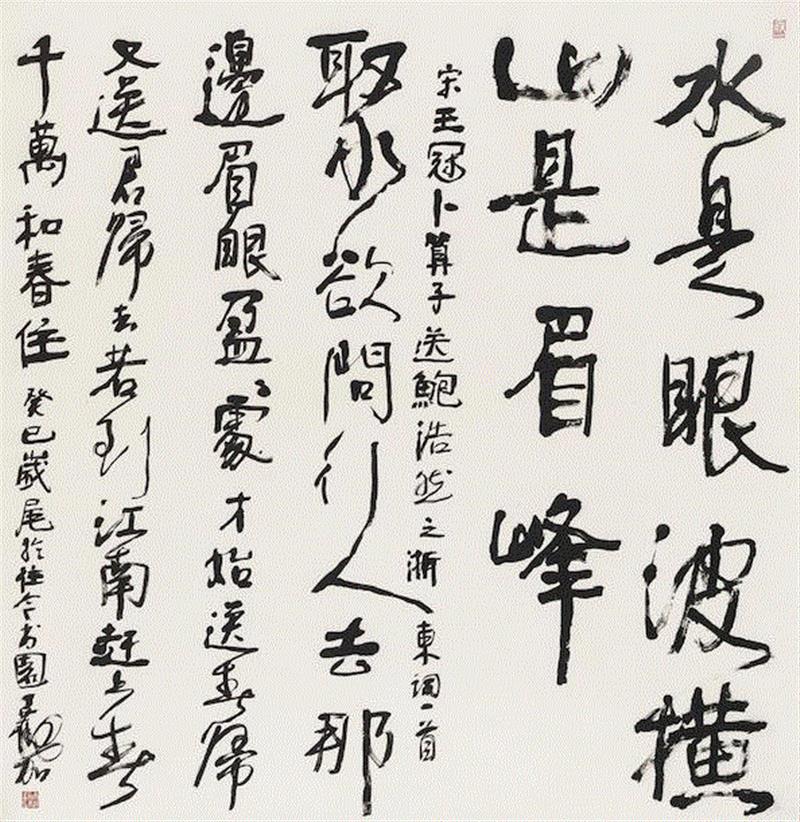 水是眼波橫
山是眉峰
宋王冠卜算子送鮑浩然之浙東詞一首
聚欲問行人去那
邊眉眼盈々處才始送春歸
又送君歸去若到江南趕上春
千萬和春住 癸巳歲尾於